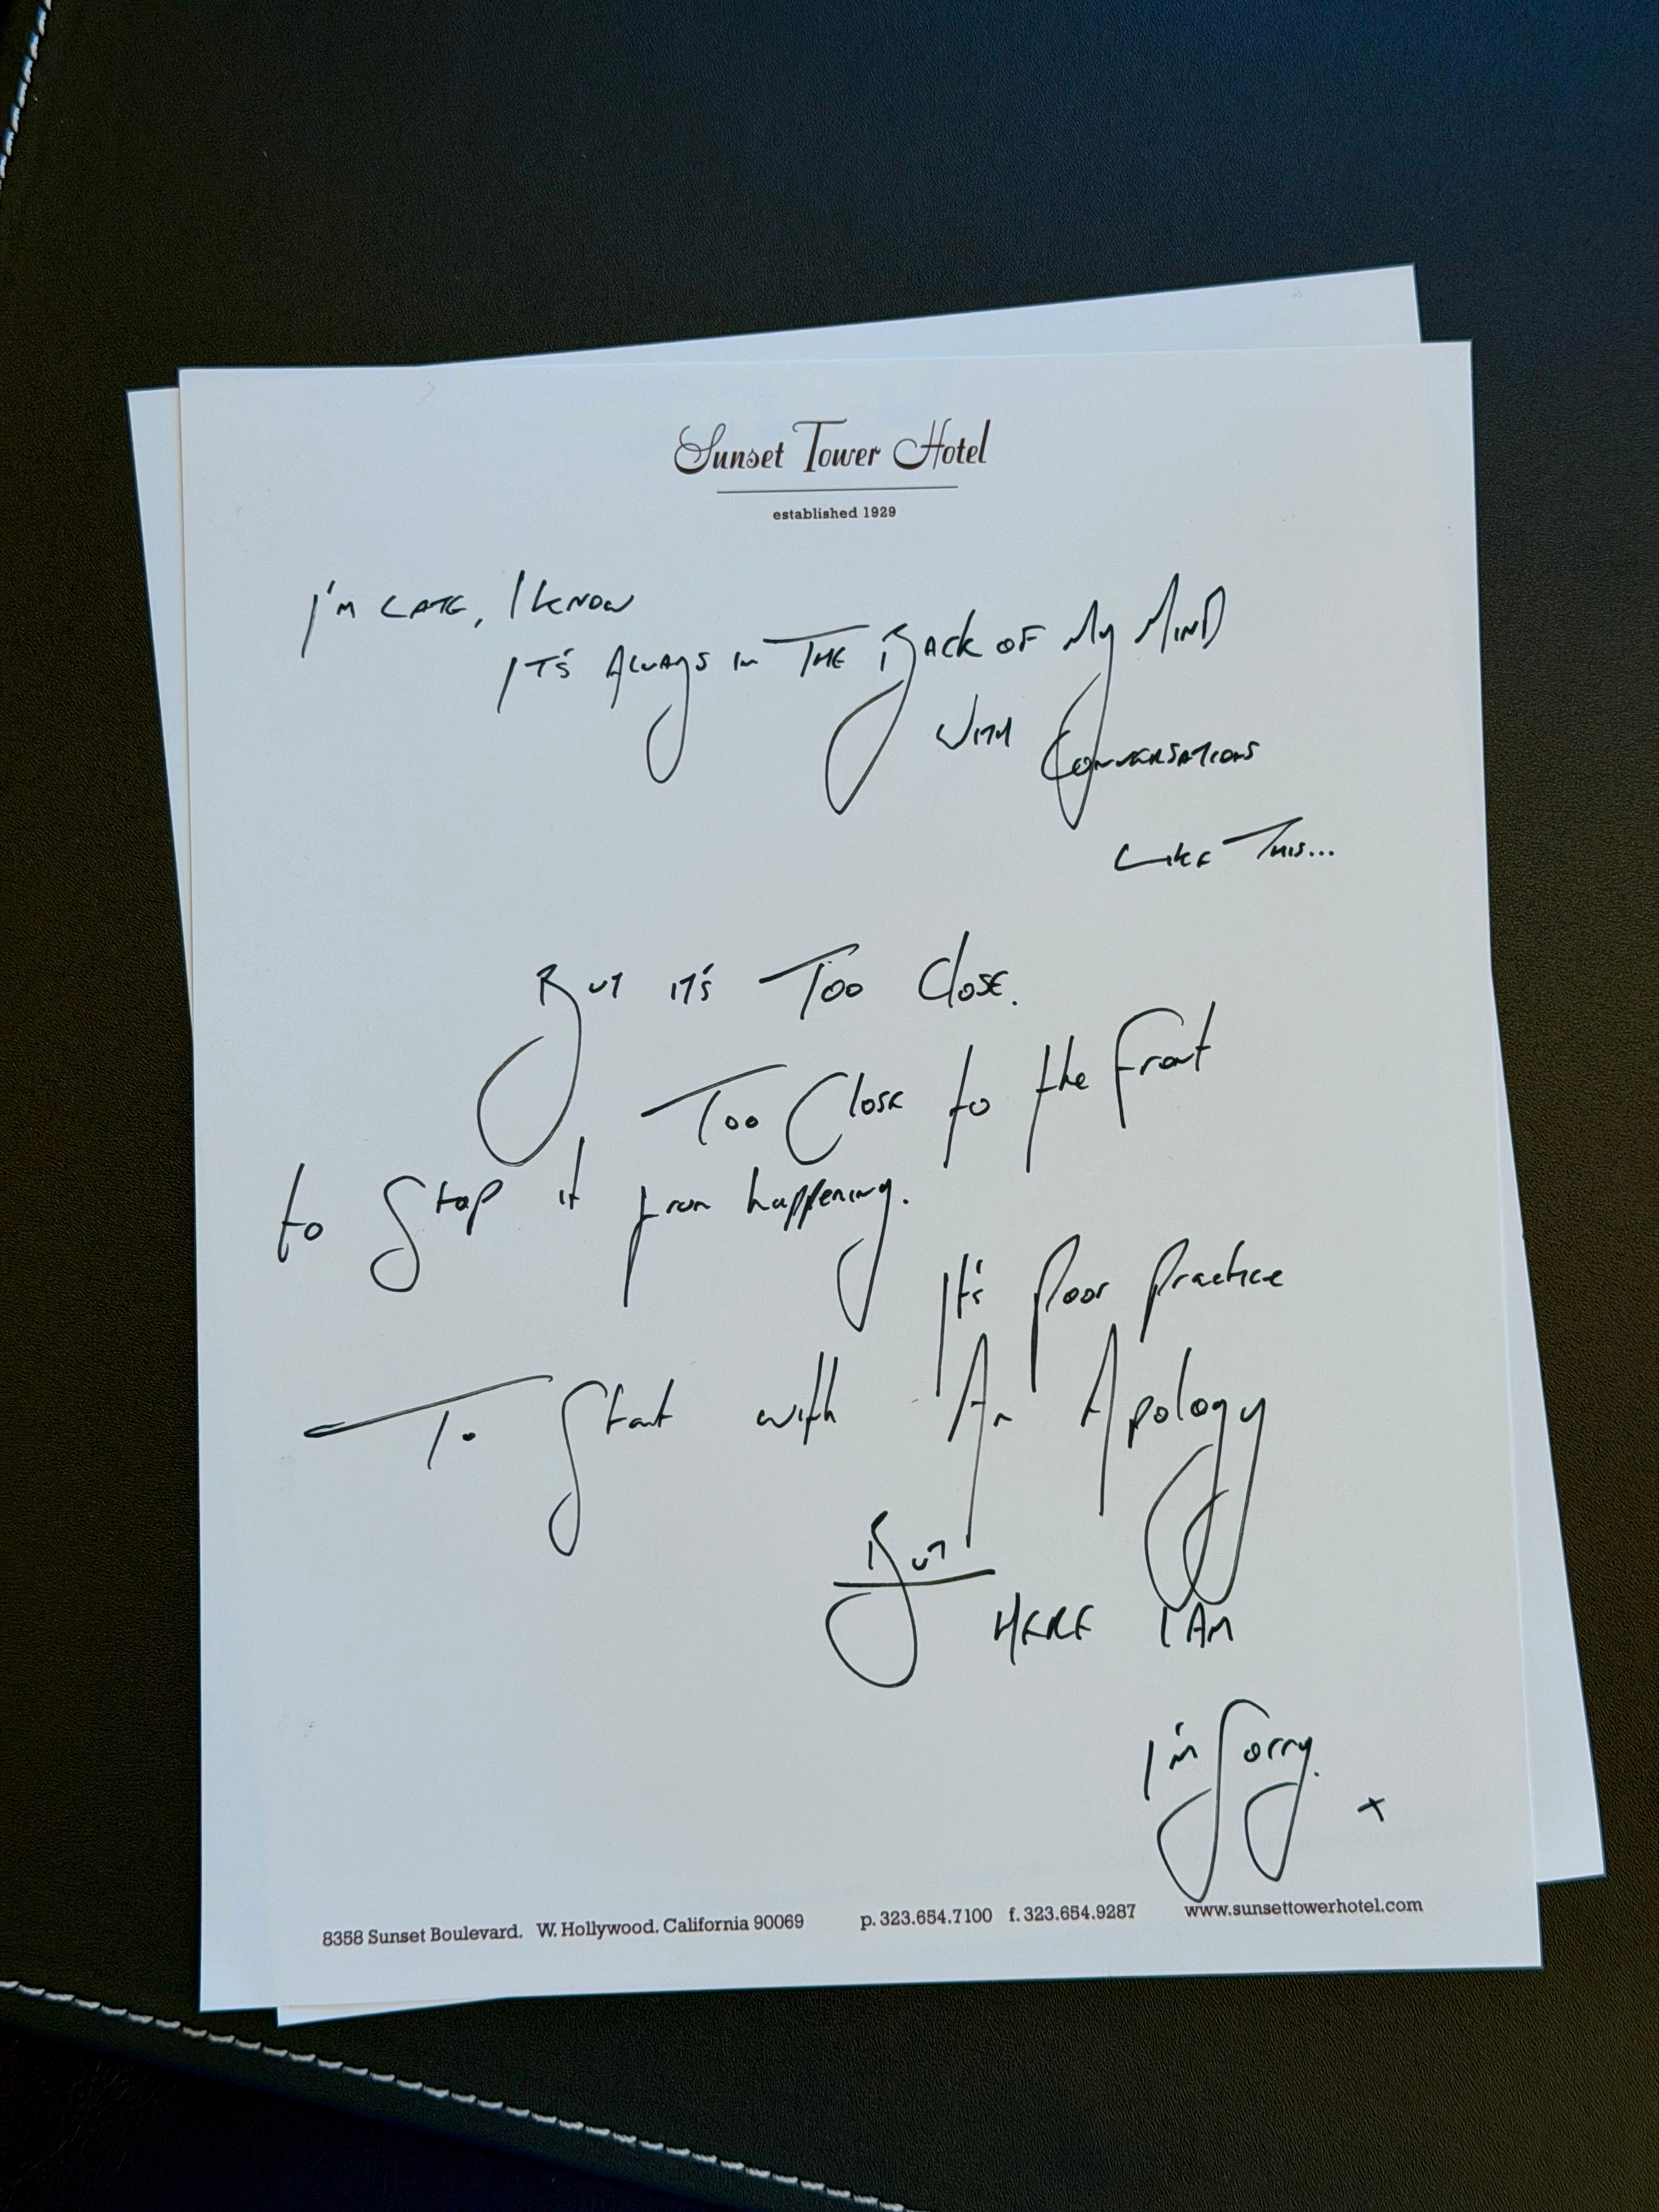 Sunset Tower Hotel
established 1929
I'M LATE, I KNOW
IT'S ALWAYS IN THE BACK OF MY MIND
WITH CONVERSATIONS
LIKE THIS...
BUT IT'S TOO CLOSE.
TOO CLOSE to the front
to Stop it from happening.
It's poor practice
To Start with An Apology
BUT
HERE I AM
I'm Sorry.
x
8358 Sunset Boulevard. W. Hollywood. California 90069 p. 323.654.7100 f. 323.654.9287 www.sunsettowerhotel.com